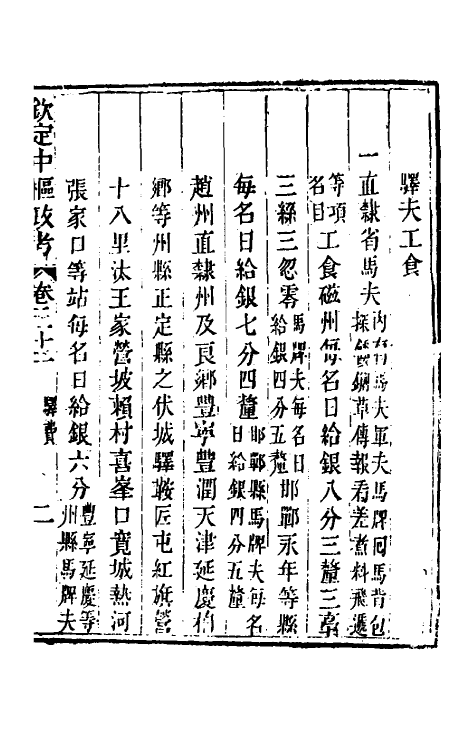 驛夫工食
一直隸省馬夫內有馬夫軍夫馬牌同馬背包
探聽鍘草傳報看差煮料飛遞
等項
名目工食磁州每名日給銀八分三釐三毫
三絲三忽零馬牌夫每名日
給銀四分五釐邯鄲永年等縣
每名日給銀七分四釐邯鄲縣馬牌夫每名
日給銀四分五釐
趙州直隸州及良鄉豐寧豐潤天津延慶栢
鄉等州縣正定縣之伏城驛鞍匠屯紅旗營
十八里汰王家營坡賴村喜峯口寬城熱河
張家口等站每名日給銀六分豐寧延慶等
州縣馬牌夫
欽定中樞政考 卷三十二 驛費 二